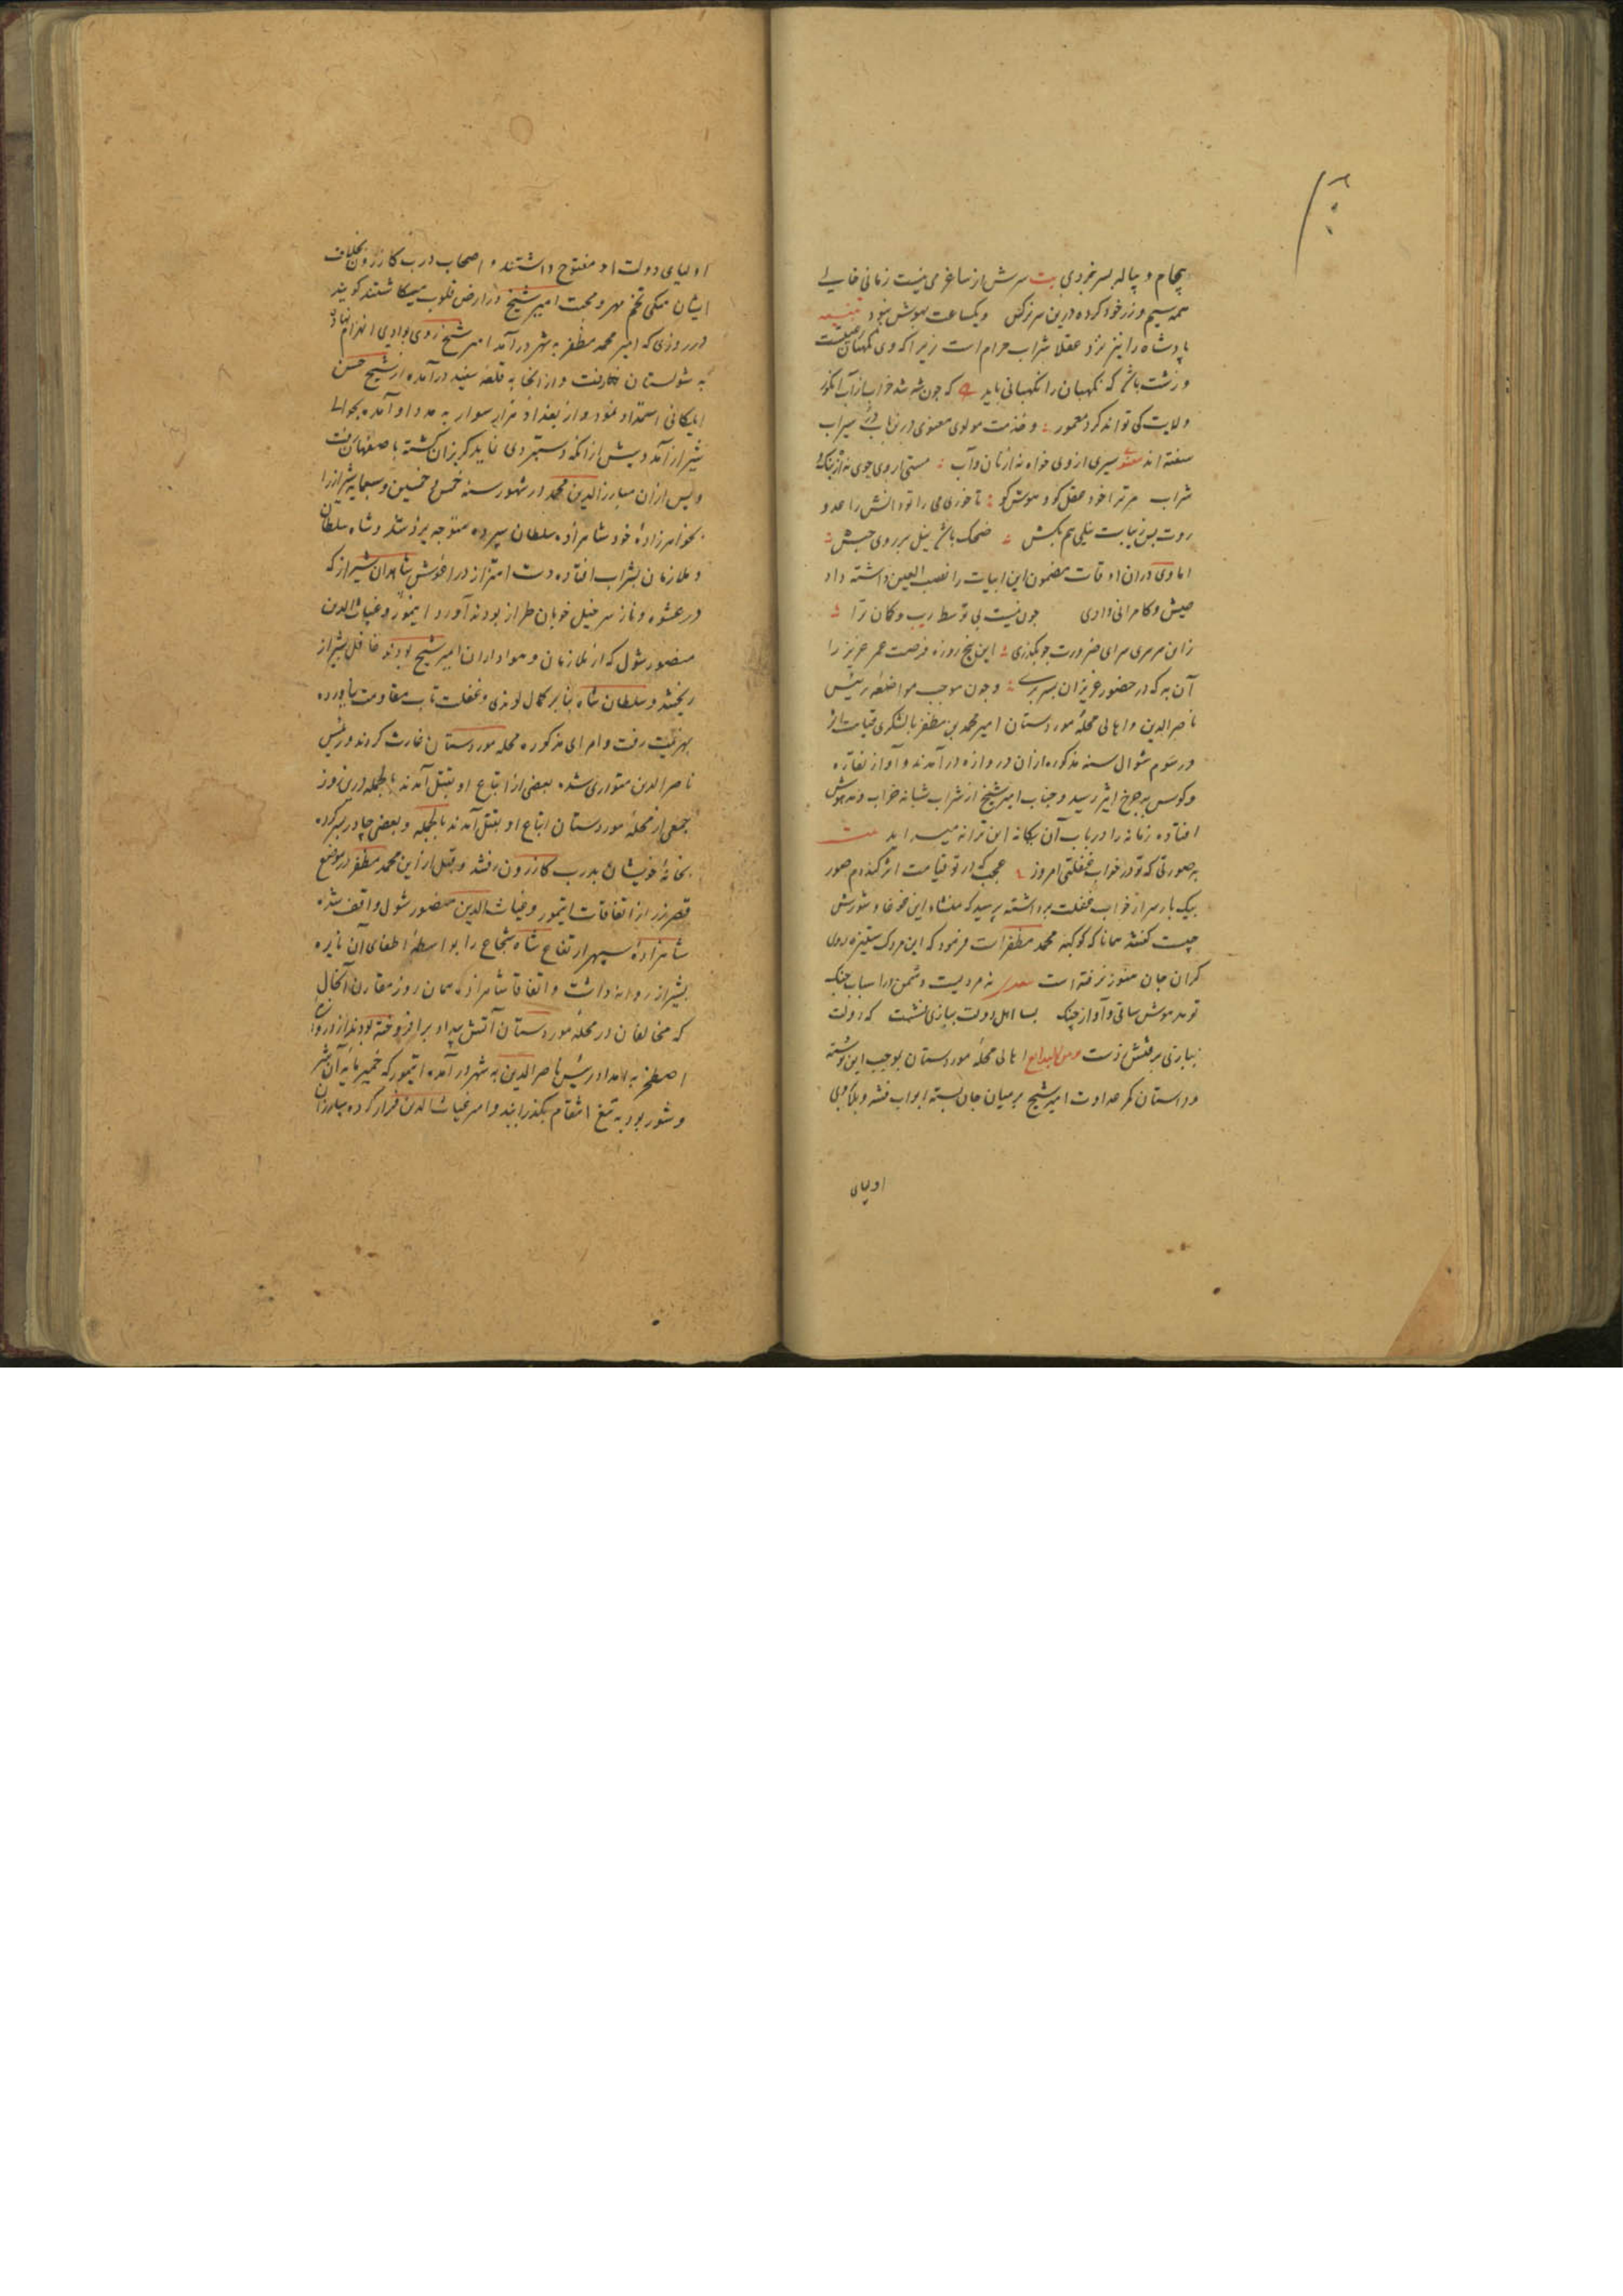 بجام و پیاله بسر نبردی بیت سرش از ساغر می نیست زمانی خالی
همه سیم و زر خود کرده درین سر زر کش ویکساعت بهوش نبود
پادشاه را نیز نزد عقلا شراب حرام است زیرا که وی نگهبان
و زشت باشد که نگهبان را نگهبانی باید که چون شه شد خراب از آب انگور
ولایت کی تواند کرد معمور و خدمت مولوی معنوی درین باب در سیراب
سفته اند سیری از وی خواه نه از نان و آب مستی از وی جوی نه از بنک و
شراب مر ترا خود عقل کو و هوش کو تا خوری می را تو دانش را عدو
روت بس زیباست نیلی هم بکش ضحک باشد نیل بر روی حبش
اما وی در آن اوقات مضمون این ابیات را نصب العین داشته داد
عیش و کامرانی دادی چون نیست بی توسط ریب و کان ترا
زین سرسری سرای ضرورت چو بگذری این پنج روزه فرصت عمر عزیز را
آن به که در حضور عزیزان بسر بری و چون موجب مواضعه رئیس
ناصر الدین و اهالی محله موردستان امیر محمد بن مظفر با لشکری قیامت اثر
در سوم شوال سنه مذکوره از آن دروازه درآمدند و آواز نقاره
و کوس بچرخ اثیر رسید و جناب امیر شیخ از شراب شبانه خراب و مدهوش
افتاده زمانه را در باب آن یکانه این ترانه میسراید بیت
به صورتی که تو در خواب غفلتی امروز عجب که از تو قیامت اثر کند دم صور
بیک بار سر از خواب غفلت برداشته پرسید که منشاء این غوغا و شورش
چیست گفتند همانا که کوکبه محمد مظفر است فرمود که این مردک ستیزه روی
گران جان هنوز نرفته است نه مردیست دشمن در اسباب جنک
تو مدهوش ساقی و آواز چنک بسا اهل دولت ببازی نشست که دولت
ببازی برفتش ز دست اهالی محله موردستان بموجب این نوشته
و داستان کمر عداوت امیر شیخ بر میان جان بسته ابواب فتنه و بلا بروی
اولیای
اولیای دولت او مفتوح داشتند و اصحاب درب کازرون بخلاف
ایشان همکی تخم مهر و محبت امیر شیخ در ارض قلوب میکاشتند گویند
در روزی که امیر محمد مظفر به شهر درآمد امیر شیخ روی بوادی انهزام نهاد
به شولستان رفت و از آنجا به قلعه سفید درآمده از شیخ حسن
ایلکانی استمداد نمود و از بغداد هزار سوار به مدد او آمده بحوالی
شیراز آمد و پیش از آنکه دستبردی نماید گریزان گشته باصفهان رفت
و پس از آن مبارز الدین محمد در شهور سنه خمس و خمسین و سبعمایه شیراز را
بخواهر زاده خود شاهزاده سلطان سپرده متوجه یزد شد و شاه سلطان
و ملازمان بشراب افتاده دست اهتزاز در آغوش شاهدان شیراز که
در عشوه و ناز سر خیل خوبان طراز بودند آورد ایتمور و غیاث الدین
منصور شول که از ملازمان و هواداران امیر شیخ بودند غافل بشیراز
ریختند و سلطان شاه بنا بر کمال لوندی و غفلت تاب مقاومت نیاورده
بهزیمت رفت و امرای مذکوره محله موردستان غارت کردند و رئیس
ناصر الدین متواری شده بعضی از اتباع او بقتل آمدند بالجمله درین روز
جمعی از محله موردستان اتباع او بقتل آمدند بالجمله و بعضی چادر بسر کرده
بخانه خویشان بدرب کازرون رفتند و قبل از این محمد مظفر در موضع
قصر زر از اتفاقات ایتمور و غیاث الدین منصور شول واقف شده
شاهزاده سپهر ارتفاع شاه شجاع را بواسطه اطفای آن نایره
بشیراز روانه داشت و اتفاقا شاهزاده همان روز مقارن آنحال
که مخالفان در محله موردستان آتش بیداد برافروخته بودند از دروازه
اصطخر به امداد رئیس ناصر الدین به شهر درآمده ایتمور که خمیر مایه آن شر
و شور بود به تیغ انتقام بگذرانید و امیر غیاث الدین فرار کرده مبارزان